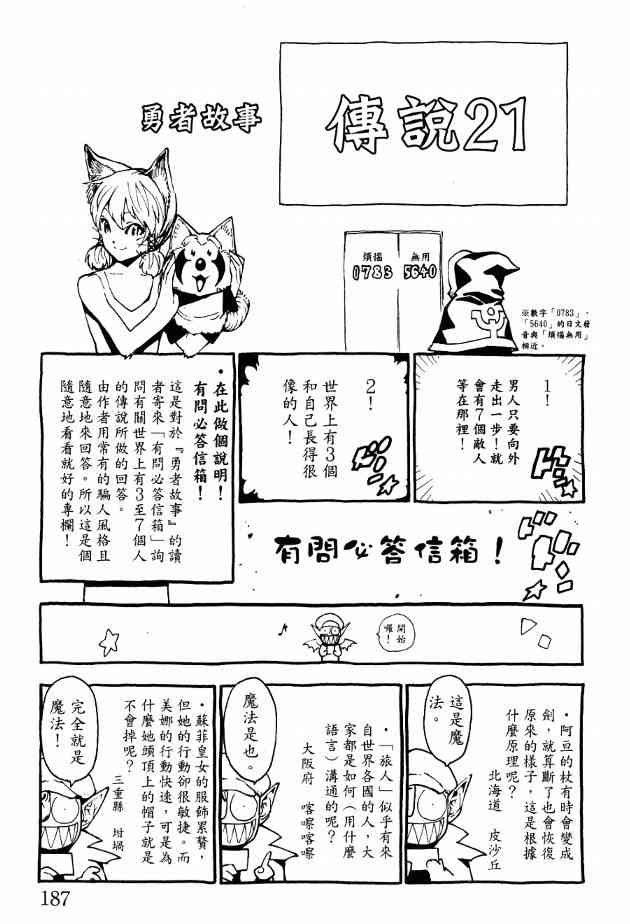 傳說21
勇者故事
無用
5640
煩惱
0783
※數字「0783」、
「5640」的日文發
音與「煩惱無用」
相近。
1!
男人只要向外
走出一步!就
會有7個敵人
等在那裡!
2!
世界上有3個
和自己長得很
像的人!
•在此做個說明!
有問必答信箱!
這是對於『勇者故事』的讀
者寄來「有問必答信箱」詢
問有關世界上有3至7個人
的傳說所做的回答。
由作者用常有的騙人風格且
隨意地來回答。所以這是個
隨意地看看就好的專欄!
有問必答信箱!
開始
囉!
•阿亘的杖有時會變成
劍,就算斷了也會恢復
原來的樣子,這是根據
什麼原理呢?
北海道 皮沙丘
這是魔
法。
•「旅人」似乎有來
自世界各國的人,大
家都是如何(用什麼
語言)溝通的呢?
大阪府 喀嚓喀嚓
魔法是也。
•蘇菲皇女的服飾累贅,
但她的行動卻很敏捷。而
美娜的行動快速,可是為
什麼她頭頂上的帽子就是
不會掉呢?
三重縣 坩堝
完全就是
魔法!
187